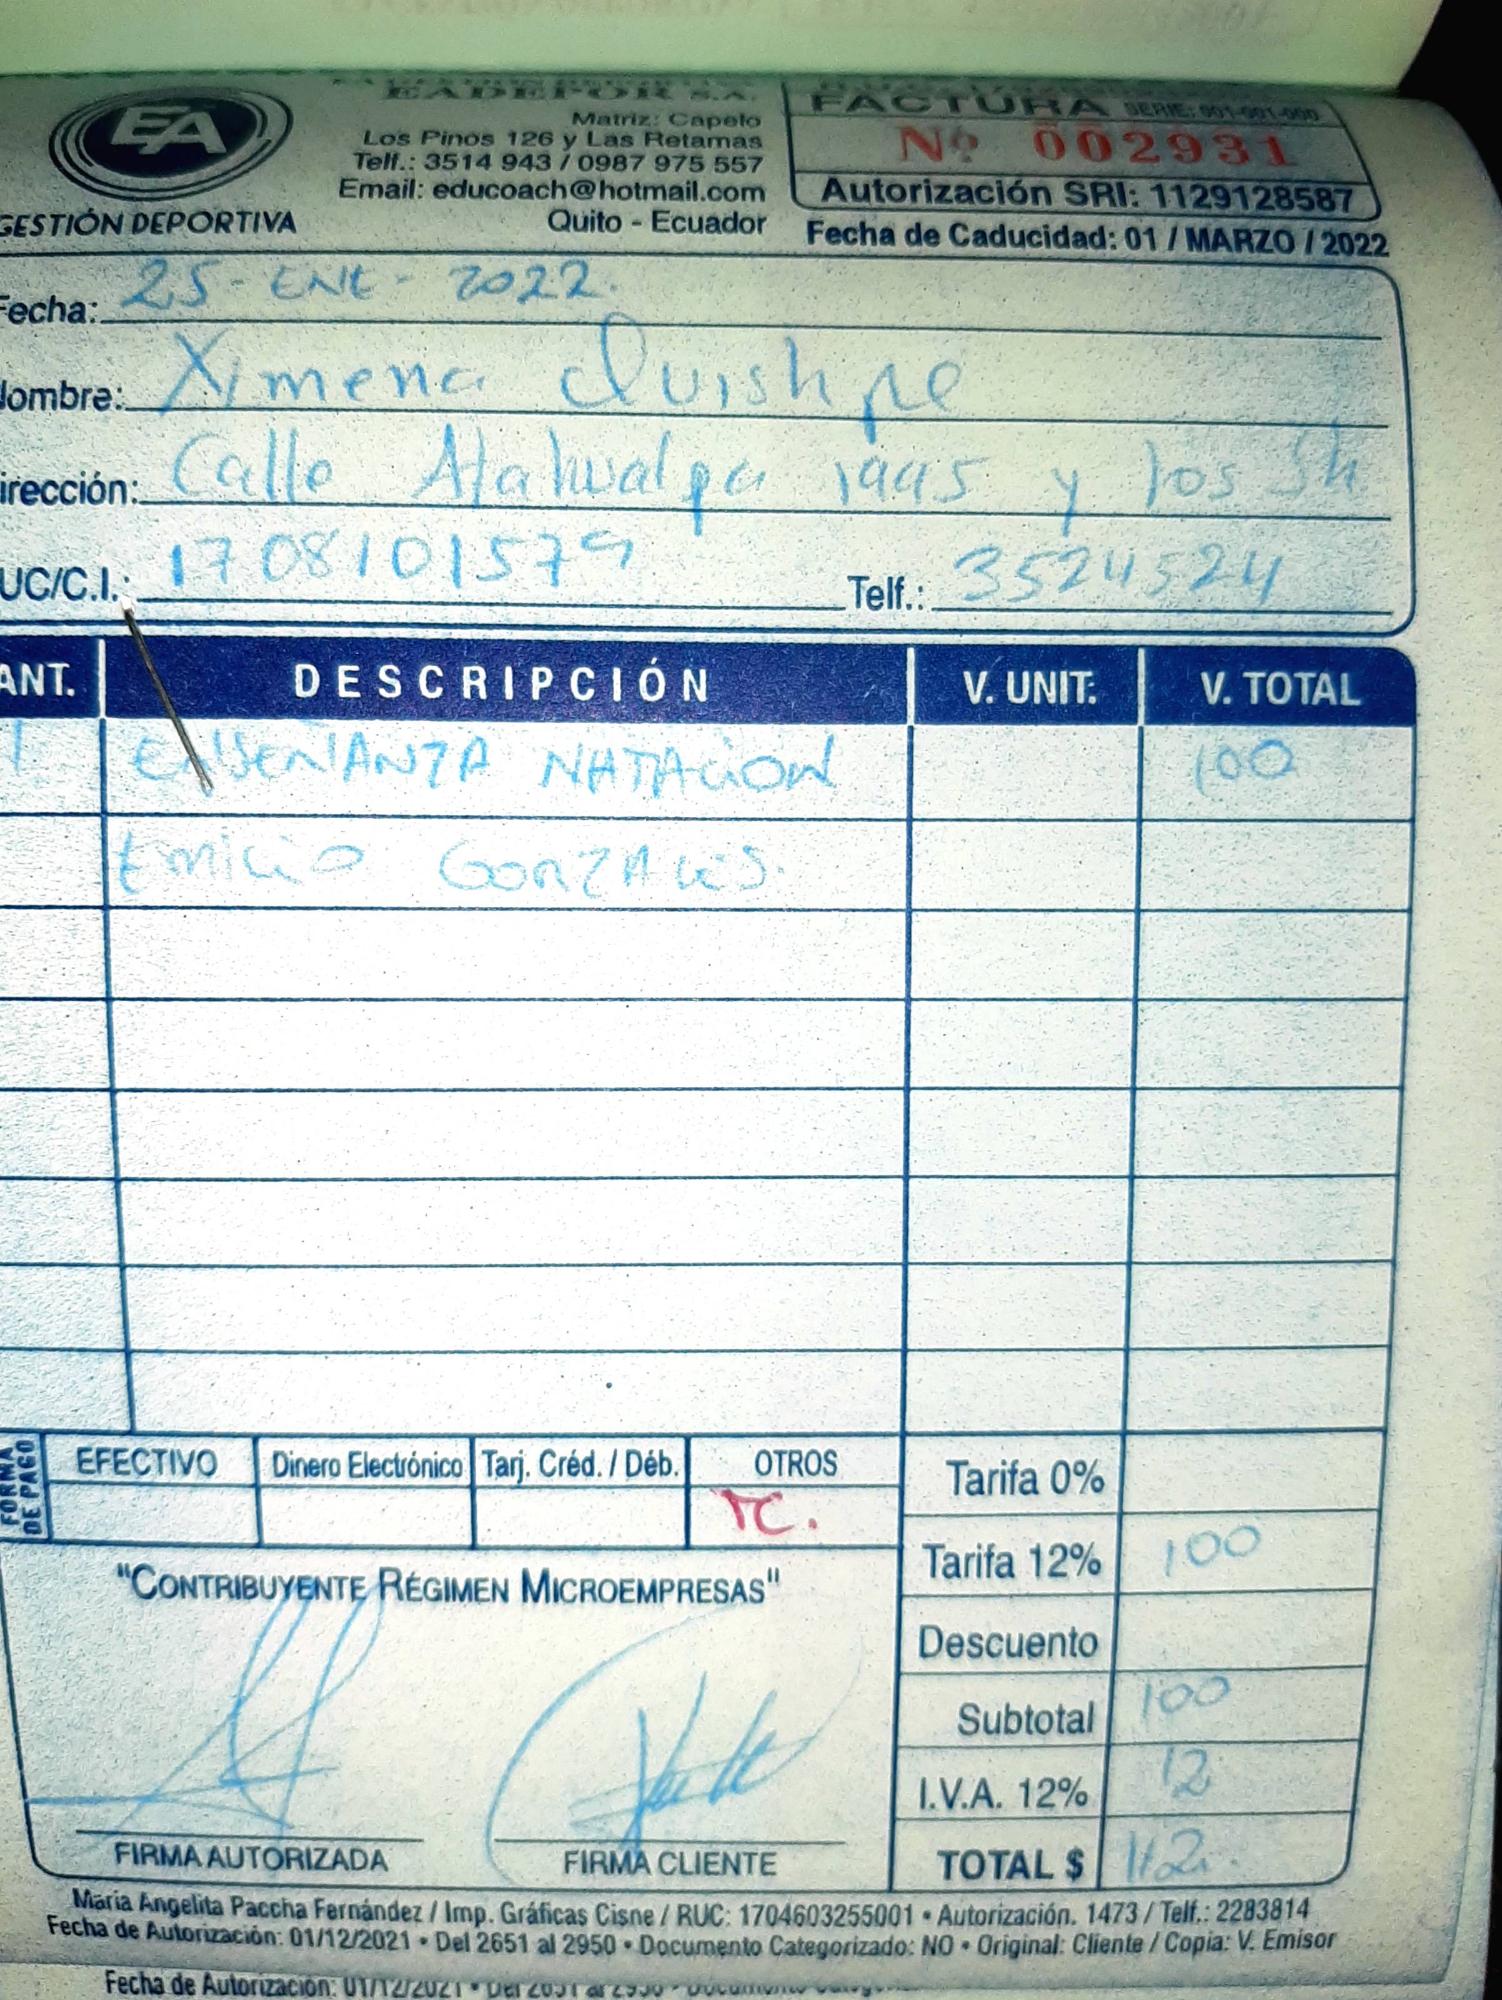 EA
GESTIÓN DEPORTIVA
EADEPOR S.A.
Matriz: Capelo
Los Pinos 126 y Las Retamas
Telf.: 3514 943 / 0987 975 557
Email: educoach@hotmail.com
Quito - Ecuador
FACTURA SERIE: 001-001-000
Nº 002931
Autorización SRI: 1129128587
Fecha de Caducidad: 01 / MARZO / 2022
Fecha: 25 - ENE - 2022.
Nombre: Ximena Quishpe
Dirección: Calle Atahualpa 1995 y los Sh
RUC/C.I.: 1708101579 Telf.: 3524524
CANT. DESCRIPCIÓN V. UNIT. V. TOTAL
1 ENSEÑANZA NATACION 100
Emilio GONZALES.
FORMA DE PAGO EFECTIVO Dinero Electrónico Tarj. Créd. / Déb. OTROS
TC.
Tarifa 0%
Tarifa 12% 100
Descuento
Subtotal 100
I.V.A. 12% 12
TOTAL $ 112.
"CONTRIBUYENTE RÉGIMEN MICROEMPRESAS"
FIRMA AUTORIZADA FIRMA CLIENTE
María Angelita Paccha Fernández / Imp. Gráficas Cisne / RUC: 1704603255001 • Autorización. 1473 / Telf.: 2283814
Fecha de Autorización: 01/12/2021 • Del 2651 al 2950 • Documento Categorizado: NO • Original: Cliente / Copia: V. Emisor
Fecha de Autorización: 01/12/2021 • Del 2651 al 2950 •